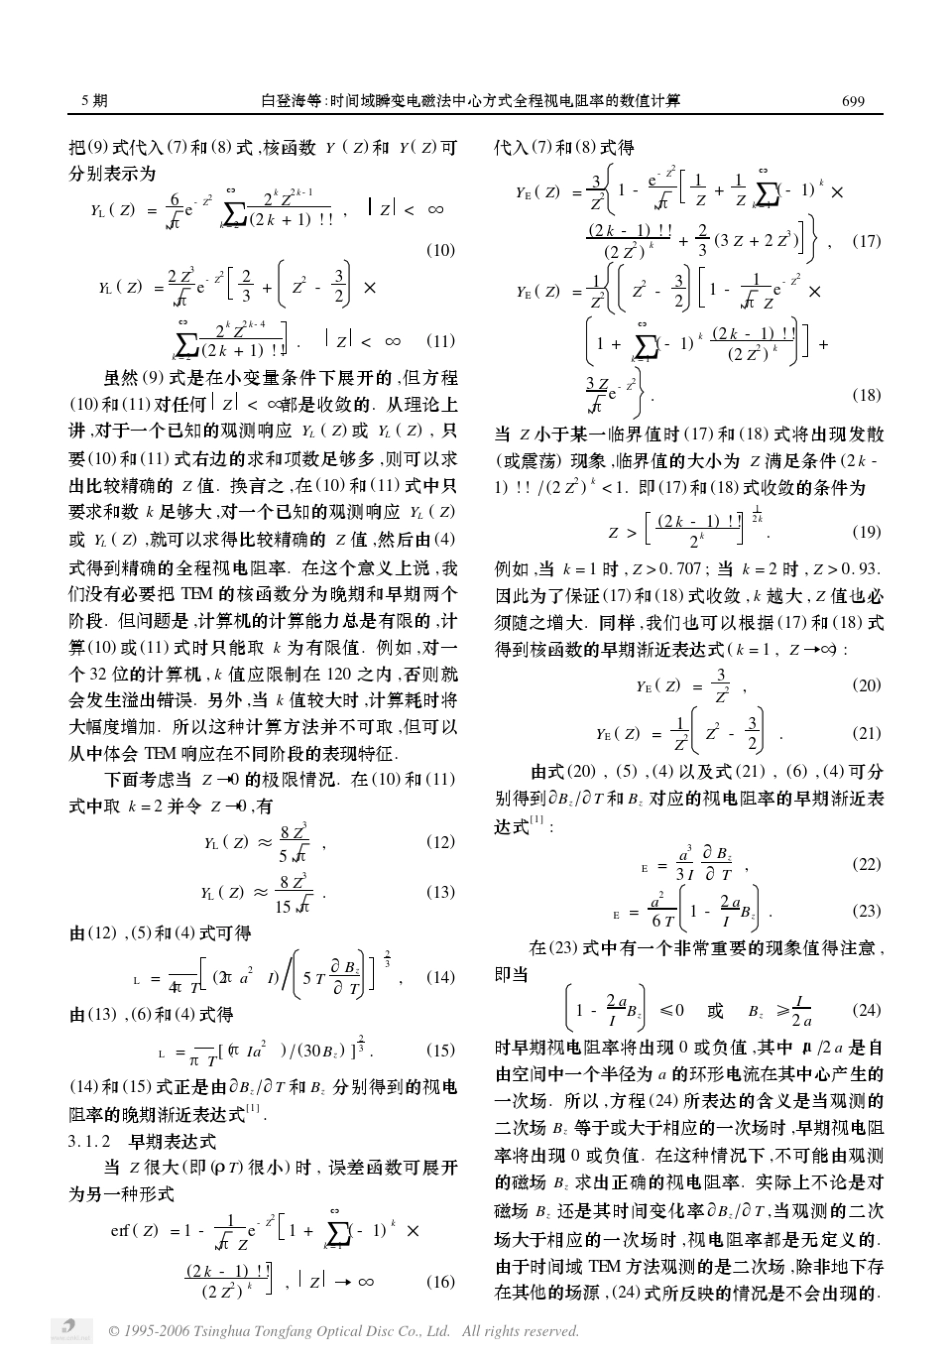 5 期
白登海等:时间域瞬变电磁法中心方式全程视电阻率的数值计算
699
把(9)式代入(7)和(8)式,核函数 Y ( Z)和 Y( Z)可
分别表示为
Y_L ( Z) = 6/√π e^{-Z²} ∑_{k=2}^{∞} 2^k Z^{2k-1}/(2k + 1) !! , | Z| < ∞
(10)
Y_L ( Z) = 2Z³/√π e^{-Z²} [ 2/3 + ( Z² - 3/2 ) ×
∑_{k=2}^{∞} 2^k Z^{2k-4}/(2k + 1) !! ] . | Z| < ∞ (11)
虽然(9)式是在小变量条件下展开的,但方程
(10)和(11)对任何| Z| < ∞都是收敛的. 从理论上
讲,对于一个已知的观测响应 Y_L ( Z)或 Y_L ( Z) , 只
要(10)和(11)式右边的求和项数足够多,则可以求
出比较精确的 Z 值. 换言之,在(10)和(11)式中只
要求和数 k 足够大,对一个已知的观测响应 Y_L ( Z)
或 Y_L ( Z) ,就可以求得比较精确的 Z 值,然后由(4)
式得到精确的全程视电阻率. 在这个意义上说,我
们没有必要把 TEM 的核函数分为晚期和早期两个
阶段. 但问题是,计算机的计算能力总是有限的,计
算(10)或(11)式时只能取 k 为有限值. 例如,对一
个 32 位的计算机, k 值应限制在 120 之内,否则就
会发生溢出错误. 另外,当 k 值较大时,计算耗时将
大幅度增加. 所以这种计算方法并不可取,但可以
从中体会 TEM 响应在不同阶段的表现特征.
下面考虑当 Z →0 的极限情况. 在(10)和(11)
式中取 k = 2 并令 Z →0 ,有
Y_L ( Z) ≈ 8Z³/5√π , (12)
Y_L ( Z) ≈ 8Z³/15√π . (13)
由(12) ,(5)和(4)式可得
_L = /4πT [ (2π a² I) / ( 5T ∂B_z/∂T ) ]^{2/3} , (14)
由(13) ,(6)和(4)式得
_L = /πT [ (π Ia² )/(30B_z) ]^{2/3} . (15)
(14)和(15)式正是由∂B_z/∂T 和 B_z 分别得到的视电
阻率的晚期渐近表达式[1] .
3. 1. 2 早期表达式
当 Z 很大(即(ρT)很小)时, 误差函数可展开
为另一种形式
erf ( Z) = 1 - 1/(√π Z) e^{-Z²} [ 1 + ∑_{k=1}^{∞} (- 1)^k ×
(2k - 1) !!/(2Z²)^k ] , | Z| → ∞ (16)
代入(7)和(8)式得
Y_E ( Z) = 3/Z² { 1 - e^{-Z²}/√π [ 1/Z + 1/Z ∑_{k=1}^{∞} (- 1)^k ×
(2k - 1) !!/(2Z²)^k + 2/3 (3Z + 2Z³) ] } , (17)
Y_E ( Z) = 1/Z² { ( Z² - 3/2 ) [ 1 - 1/(√π Z) e^{-Z²} ×
( 1 + ∑_{k=1}^{∞} (- 1)^k (2k - 1) !!/(2Z²)^k ) ] +
3Z/√π e^{-Z²} } . (18)
当 Z 小于某一临界值时(17)和(18)式将出现发散
(或震荡) 现象,临界值的大小为 Z 满足条件(2k -
1) !! /(2Z²)^k < 1. 即(17)和(18)式收敛的条件为
Z > [ (2k - 1) !!/2^k ]^{1/2k} . (19)
例如,当 k = 1 时, Z > 0. 707 ; 当 k = 2 时, Z > 0. 93.
因此为了保证(17)和(18)式收敛, k 越大, Z 值也必
须随之增大. 同样,我们也可以根据(17)和(18)式
得到核函数的早期渐近表达式( k = 1 , Z →∞) :
Y_E ( Z) = 3/Z² , (20)
Y_E ( Z) = 1/Z² ( Z² - 3/2 ) . (21)
由式(20) , (5) ,(4)以及式(21) , (6) ,(4)可分
别得到∂B_z/∂T 和 B_z 对应的视电阻率的早期渐近表
达式[1] :
_E = a³/3I ∂B_z/∂T , (22)
_E = a²/6T ( 1 - 2a/I B_z ) . (23)
在(23)式中有一个非常重要的现象值得注意,
即当
( 1 - 2a/I B_z ) ≤0 或 B_z ≥ I/2a (24)
时早期视电阻率将出现 0 或负值,其中 μ/2a 是自
由空间中一个半径为 a 的环形电流在其中心产生的
一次场. 所以,方程(24)所表达的含义是当观测的
二次场 B_z 等于或大于相应的一次场时,早期视电阻
率将出现 0 或负值. 在这种情况下,不可能由观测
的磁场 B_z 求出正确的视电阻率. 实际上不论是对
磁场 B_z 还是其时间变化率∂B_z/∂T ,当观测的二次
场大于相应的一次场时,视电阻率都是无定义的.
由于时间域 TEM 方法观测的是二次场,除非地下存
在其他的场源,(24)式所反映的情况是不会出现的.
© 1995-2006 Tsinghua Tongfang Optical Disc Co., Ltd. All rights reserved.